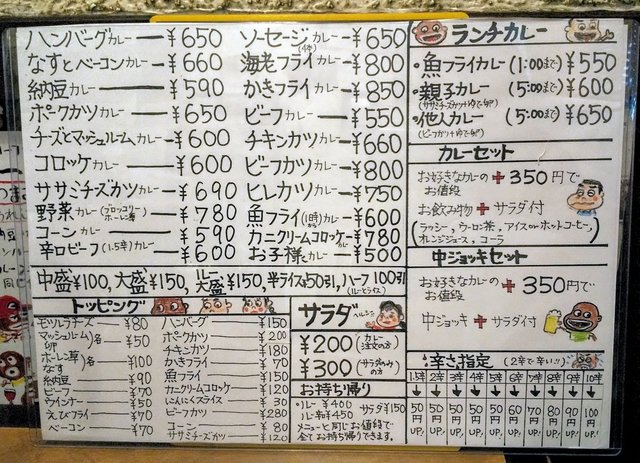 ハンバーグカレー ¥650
なすとベーコンカレー ¥660
納豆カレー ¥590
ポークカツカレー ¥650
チーズとマッシュルームカレー ¥600
コロッケカレー ¥600
ササミチーズカツカレー ¥690
野菜カレー(ブロッコリー ホーレン草) ¥780
コーンカレー ¥590
辛口ビーフ(1.5辛)カレー ¥600
ソーセージ(4本)カレー ¥650
海老フライカレー ¥800
かきフライカレー ¥850
ビーフカレー ¥550
チキンカツカレー ¥660
ビーフカツカレー ¥800
ヒレカツカレー ¥750
魚フライ(1時から)カレー ¥600
カニクリームコロッケカレー ¥780
お子様カレー ¥500
中盛¥100, 大盛¥150, ルー大盛¥150, 半ライス¥50引, ハーフ100引(ルーとライス)
ランチカレー
・魚フライカレー(1:00まで) ¥550
・親子カレー(5:00まで) ¥600
(ササミチーズカツとゆで卵)
・他人カレー(5:00まで) ¥650
(ビーフカツとゆで卵)
カレーセット
お好きなカレーのお値段 + 350円で
お飲み物 + サラダ付
(ラッシー, ウーロン茶, アイスorホットコーヒー,
オレンジジュース, コーラ)
中ジョッキセット
お好きなカレーのお値段 + 350円で
中ジョッキ + サラダ付
トッピング
モツルラチーズ ¥80
マッシュルーム
卵 }各 ¥50
ホーレン草
なす }各 ¥100
納豆 ¥90
ビーフ ¥70
ウィンナー ¥50
えびフライ ¥70
ベーコン ¥70
ハンバーグ ¥150
ポークカツ ¥200
チキンカツ ¥180
かきフライ ¥70
魚フライ ¥150
カニクリームコロッケ ¥120
にんにくスライス ¥30
ビーフカツ ¥280
コーン ¥80
ササミチーズカツ ¥120
サラダ
¥200(カレー注文の方)
¥300(サラダのみの方)
お持ち帰り
・ルー ¥400
ルー和 ¥450 サラダ¥150
メニューと同じお値段で
全てお持ち帰りできます。
辛さ指定 (2辛で辛い!!)
1.5辛 2辛 3辛 4辛 5辛 6辛 7辛 8辛 9辛 10辛
50円UP! 50円UP! 50円UP! 50円UP! 50円UP! 60円UP! 70円UP! 80円UP! 90円UP! 100円UP!